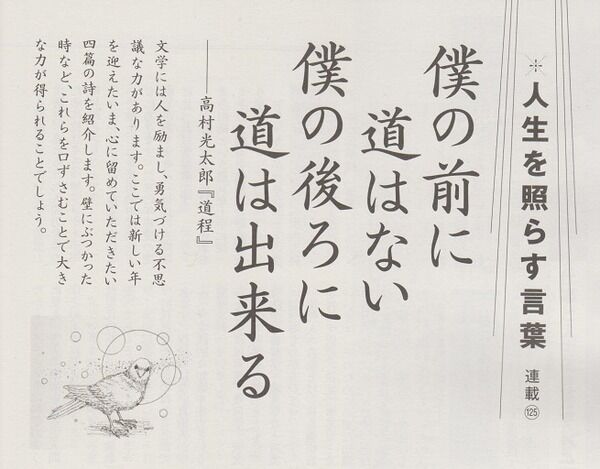 ※人生を照らす言葉 連載125
僕の前に
道はない
僕の後ろに
道は出来る
──高村光太郎『道程』
文学には人を励まし、勇気づける不思
議な力があります。ここでは新しい年
を迎えたいま、心に留めていただきたい
四篇の詩を紹介します。壁にぶつかった
時など、これらを口ずさむことで大き
な力が得られることでしょう。